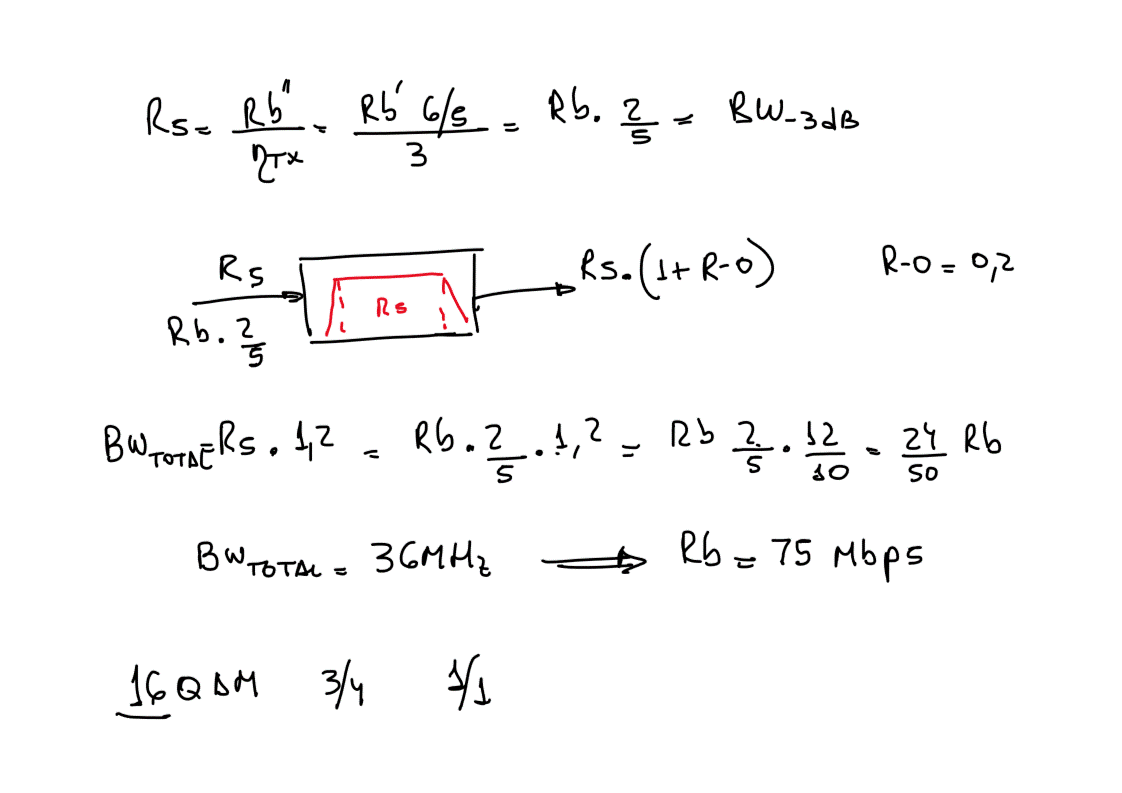 Rs = Rb'' / ηTX = Rb' 6/5 / 3 = Rb · 2/5 = BW-3dB
Rs Rs Rs·(1+R-O) R-O = 0,2
Rb · 2/5
BWTOTAL = Rs · 1,2 = Rb · 2/5 · 1,2 = Rb 2/5 · 12/10 = 24/50 Rb
BWTOTAL = 36MHz ⟹ Rb = 75 Mbps
16QAM 3/4 1/1